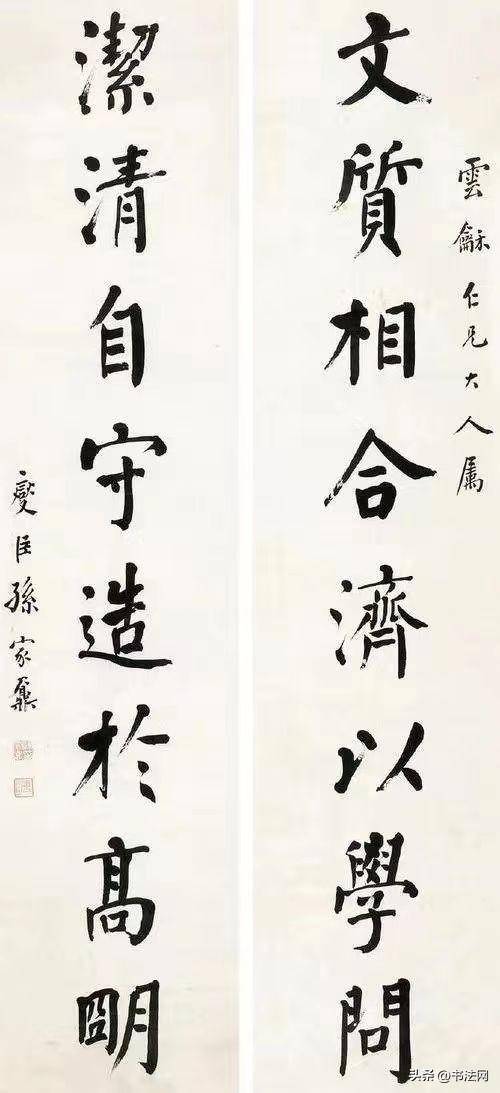 雲龢仁兄大人属
文質相合濟以學問
潔清自守造於高明
燮臣孫家鼐
头条 @书法网